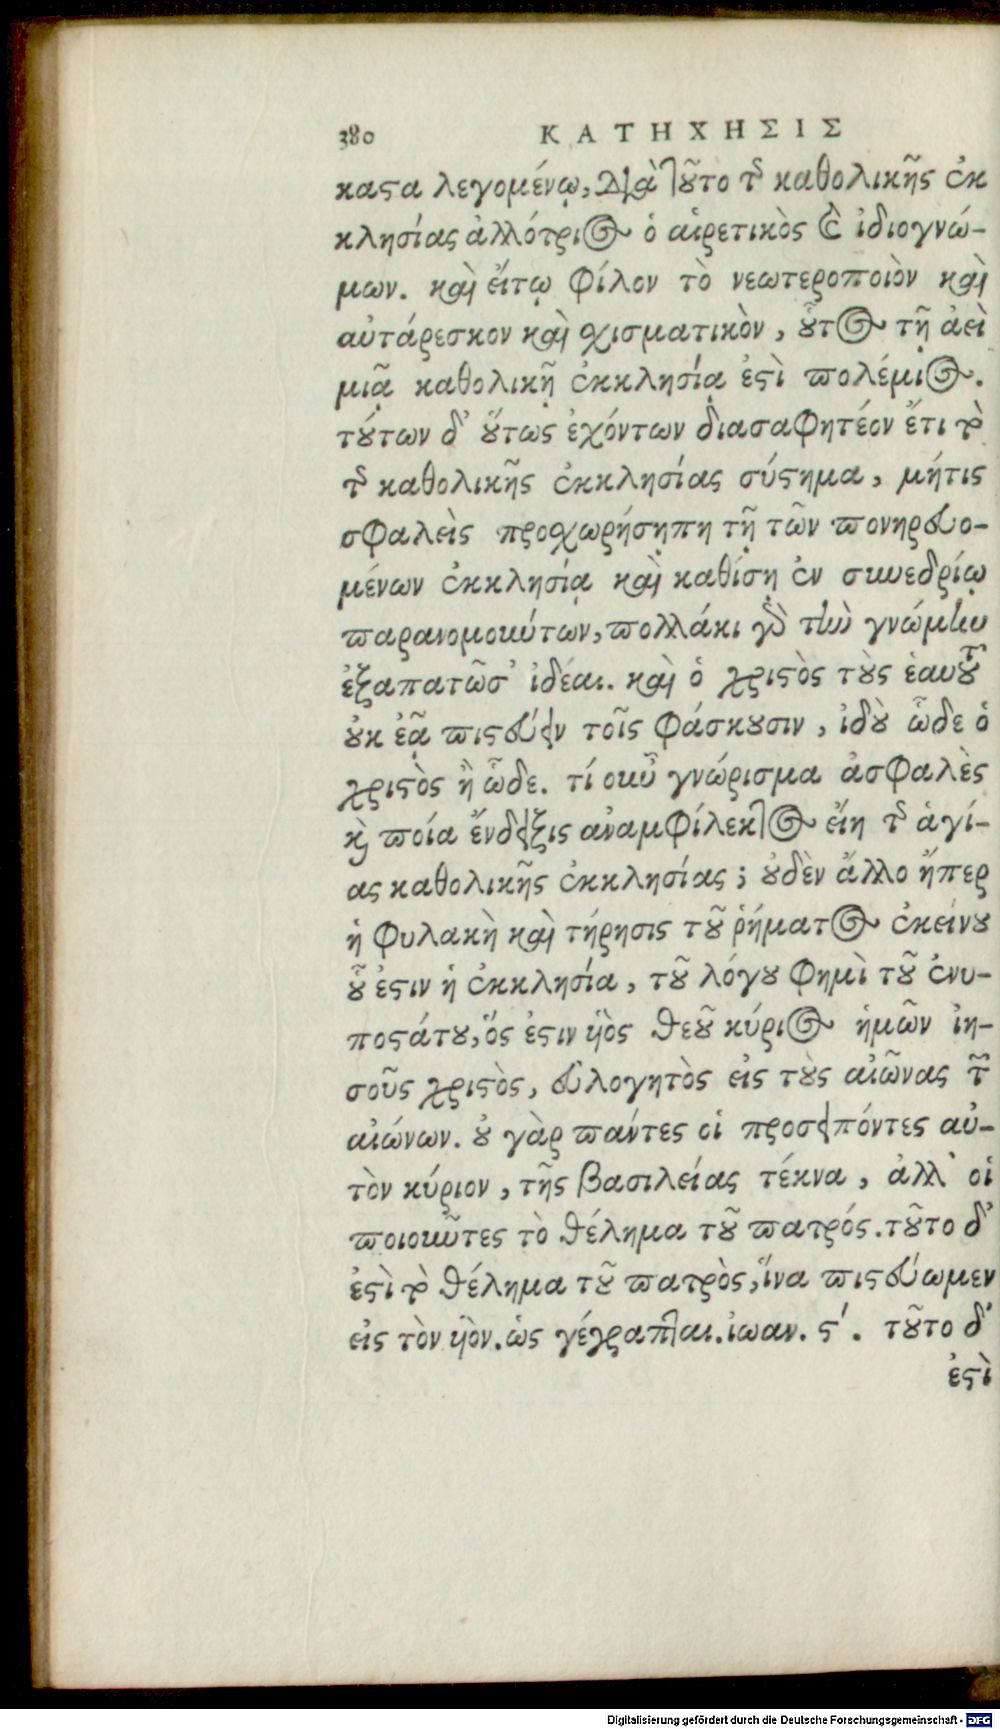 380 ΚΑΤΗΧΗΣΙΣ
καϛα λεγομένῳ, Διὰ τοῦτο τῆς καθολικῆς ἐκ
κλησίας ἀλλότριος ὁ αἱρετικὸς ἢ ἰδιογνώ-
μων. καὶ εἴτῳ φίλον τὸ νεωτεροποιὸν καὶ
αὐτάρεσκον καὶ σχισματικὸν, οὗτος τῇ ἀεὶ
μιᾷ καθολικῇ ἐκκλησίᾳ ἐϛὶ πολέμιος.
τούτων δ' οὕτως ἐχόντων διασαφητέον ἔτι τὸ
τῆς καθολικῆς ἐκκλησίας σύϛημα, μήτις
σφαλεὶς προχωρήσῃπη τῇ τῶν πονηρευο-
μένων ἐκκλησίᾳ καὶ καθίσῃ ἐν συνεδρίῳ
παρανομούντων, πολλάκι γὰρ τὴν γνώμην
ἐξαπατῶσ' ἰδέαι. καὶ ὁ χριϛὸς τοὺς ἑαυτοῦ
οὐκ ἐᾷ πιϛεύειν τοῖς φάσκουσιν, ἰδοὺ ὧδε ὁ
χριϛὸς ἢ ὧδε. τί οὖν γνώρισμα ἀσφαλὲς
καὶ ποία ἔνδειξις ἀναμφίλεκτος εἴη τῆς ἁγί-
ας καθολικῆς ἐκκλησίας; οὐδὲν ἄλλο ἤπερ
ἡ φυλακὴ καὶ τήρησις τοῦ ῥήματος ἐκείνου
οὗ ἐϛιν ἡ ἐκκλησία, τοῦ λόγου φημὶ τοῦ ἐνυ-
ποϛάτου, ὅς ἐϛιν υἱὸς θεοῦ κύριος ἡμῶν ἰη-
σοῦς χριϛὸς, εὐλογητὸς εἰς τοὺς αἰῶνας τῶν
αἰώνων. οὐ γὰρ πάντες οἱ προσειπόντες αὐ-
τὸν κύριον, τῆς βασιλείας τέκνα, ἀλλ' οἱ
ποιοῦντες τὸ θέλημα τοῦ πατρός. τοῦτο δ'
ἐϛὶ τὸ θέλημα τοῦ πατρὸς, ἵνα πιϛεύωμεν
εἰς τὸν υἱὸν. ὡς γέγραπται. ἰωαν. ϛ'. τοῦτο δ'
ἐϛὶ
Digitalisierung gefördert durch die Deutsche Forschungsgemeinschaft - DFG